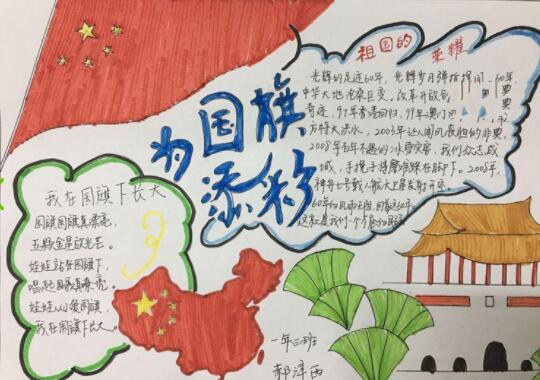 为国旗
添彩
祖国的荣耀
光辉的足迹60年,光辉岁月弹指挥间,60年,
中华大地沧桑巨变。改革开放创
奇迹,97年香港回归,99年澳门
万年大洪水,2003年让人闻风丧胆的非典,
2008年百年不遇的冰雪灾害,我们众志成
城,手挽手将磨难踩在脚下。2008年,
神舟七号载人航天卫星发射
60年
这就是我们
我在国旗下长大
国旗国旗真漂亮,
五颗金星放光芒。
娃娃站在国旗下,
唱起国歌真嘹亮。
娃娃从小爱国旗,
我在国旗下长大。
一年二班
郝泽西